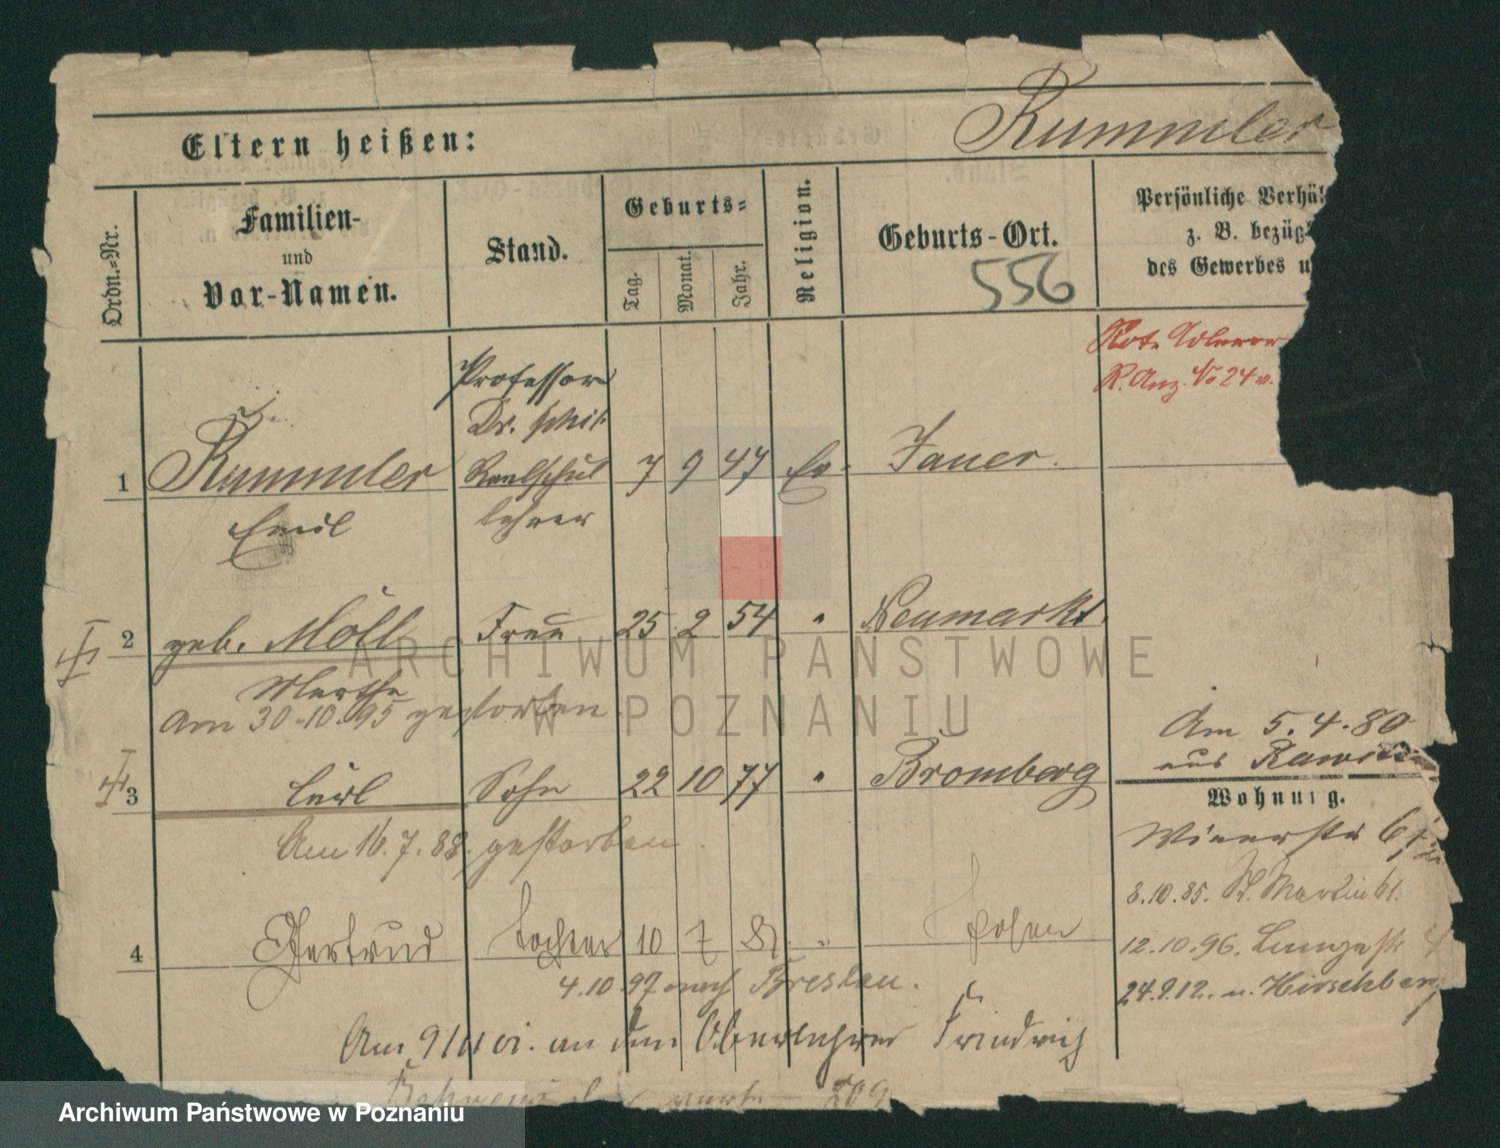 Rummler
Eltern heißen:
Ordn.-Nr.
Familien-
und
Vor-Namen.
Stand.
Geburts-
Tag.
Monat.
Jahr.
Religion.
Geburts-Ort.
556
Persönliche Verhäl
z. B. bezüg
des Gewerbes u
Rot. Adleror
R. Anz. No 24 v.
Professor
Dr. phil.
1 Rummler Realschul 7 9 47 Ev. Jauer.
Emil lehrer
2 geb. Möll Frau 25 2 54 " Neumarkt.
Martha
Am 30.10.95 gestorben
Am 5.4.80
aus Rawi
3 Curl Sohn 22 10 77 " Bromberg
Wohnung.
Am 16.7.88. gestorben.
Wienerstr 6
8.10.85. St. Martin 61.
4 Gertrud Tochter 10 7 81. " Posen
12.10.96. Langestr 4
4.10.97 nach Breslau.
24.9.12. n. Hirschberg
Am 9/11 01. an den Oberlehrer Friedrich
209
ARCHIWUM PAŃSTWOWE
W POZNANIU
Archiwum Państwowe w Poznaniu